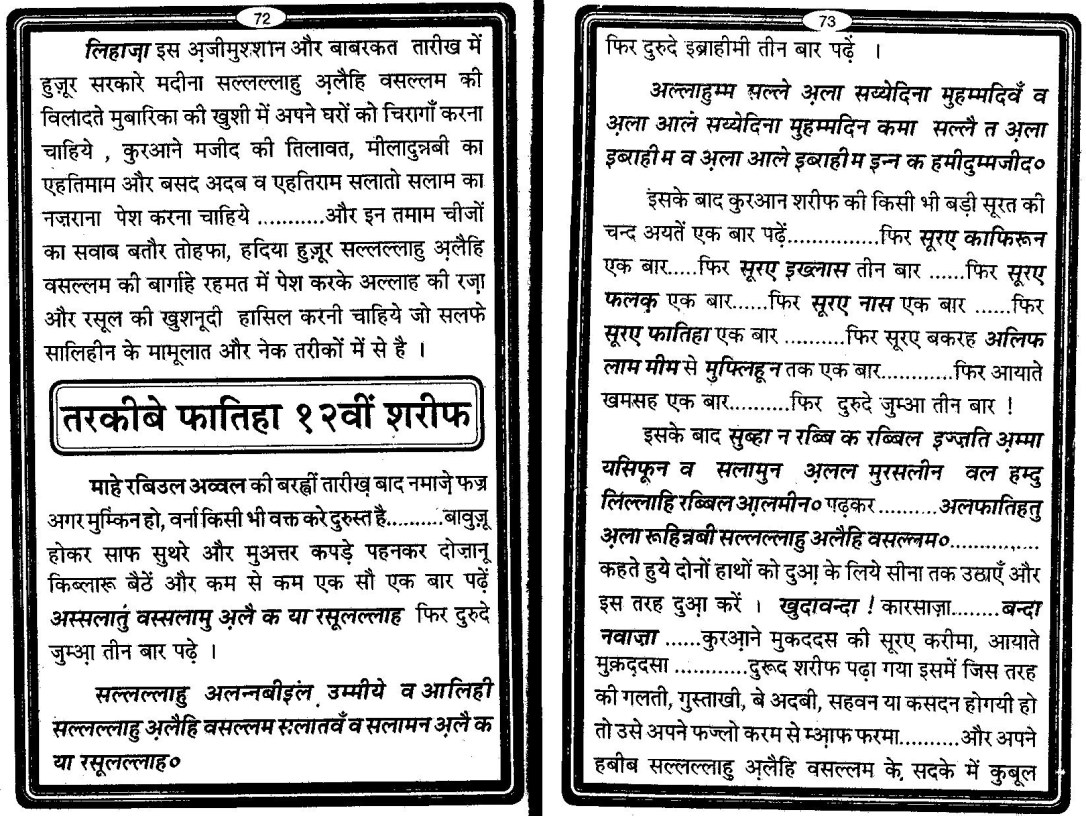 72
लिहाज़ा इस अ़ज़ीमुश्शान और बाबरकत तारीख में
हुज़ूर सरकारे मदीना सल्लल्लाहु अ़लैहि वसल्लम की
विलादते मुबारिका की खुशी में अपने घरों को चिरागाँ करना
चाहिये , कुरआने मजीद की तिलावत, मीलादुन्नबी का
एहतिमाम और बसद अदब व एहतिराम सलातो सलाम का
नज़राना पेश करना चाहिये ...........और इन तमाम चीजों
का सवाब बतौर तोहफा, हदिया हुज़ूर सल्लल्लाहु अ़लैहि
वसल्लम की बार्गाहे रहमत में पेश करके अल्लाह की रज़ा
और रसूल की खुशनूदी हासिल करनी चाहिये जो सलफे
सालिहीन के मामूलात और नेक तरीकों में से है ।
तरकीबे फातिहा १२वीं शरीफ
माहे रबिउल अव्वल की बरह्वीं तारीख़ बाद नमाज़े फज्र
अगर मुम्किन हो, वर्ना किसी भी वक्त करे दुरुस्त है..........बावुज़ू
होकर साफ सुथरे और मुअत्तर कपड़े पहनकर दोज़ानू
किब्लारू बैठें और कम से कम एक सौ एक बार पढ़ें
अस्सलातुं वस्सलामु अ़लै क या रसूलल्लाह फिर दुरुदे
जुम्आ़ तीन बार पढ़े ।
सल्लल्लाहु अलन्नबीइल उम्मीये व आलिही
सल्लल्लाहु अ़लैहि वसल्लम सलातवँ व सलामन अ़लै क
या रसूलल्लाह०
73
फिर दुरुदे इब्राहीमी तीन बार पढ़ें ।
अल्लाहुम्म सल्ले अ़ला सय्येदिना मुहम्मदिवँ व
अ़ला आले सय्येदिना मुहम्मदिन कमा सल्लै त अ़ला
इब्राहीम व अ़ला आले इब्राहीम इन्न क हमीदुम्मजीद०
इसके बाद कुरआन शरीफ की किसी भी बड़ी सूरत की
चन्द अयतें एक बार पढ़ें...............फिर सूरए काफिरून
एक बार.....फिर सूरए इख्लास तीन बार ......फिर सूरए
फलक़ एक बार......फिर सूरए नास एक बार ......फिर
सूरए फातिहा एक बार ..........फिर सूरए बकरह अलिफ
लाम मीम से मुफ्लिहून तक एक बार............फिर आयाते
खमसह एक बार..........फिर दुरुदे जुम्आ तीन बार !
इसके बाद सुब्हा न रब्बि क रब्बिल इज्ज़ति अ़म्मा
यसिफून व सलामुन अ़लल मुरसलीन वल हम्दु
लिल्लाहि रब्बिल आ़लमीन० पढ़कर ..........अलफातिहतु
अ़ला रूहिन्नबी सल्लल्लाहु अलैहि वसल्लम०...............
कहते हुये दोनों हाथों को दुआ़ के लिये सीना तक उठाएँ और
इस तरह दुआ़ करें । खुदावन्दा ! कारसाज़ा........बन्दा
नवाज़ा ......कुरआ़ने मुकददस की सूरए करीमा, आयाते
मुक़द्दसा ............दुरूद शरीफ पढ़ा गया इसमें जिस तरह
की गलती, गुस्ताखी, बे अदबी, सहवन या कसदन होगयी हो
तो उसे अपने फज्लो करम से म्आ़फ फरमा..........और अपने
हबीब सल्लल्लाहु अ़लैहि वसल्लम के सदके में कुबूल